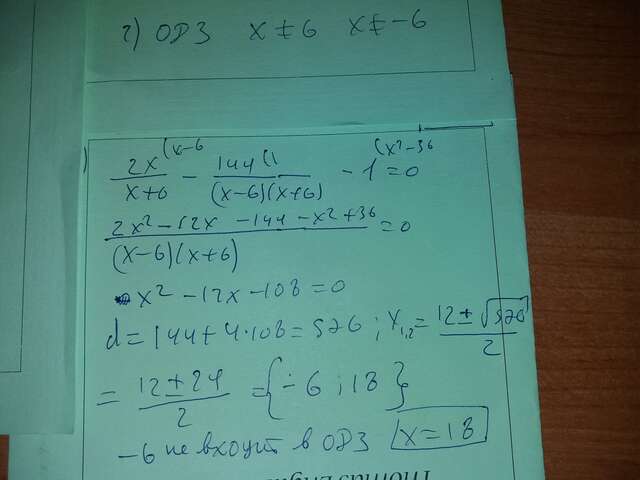 2) ОДЗ x ≠ 6 x ≠ -6
2x (x-6 / x+6 - 144 (1 / (x-6)(x+6) - 1 = 0 (x²-36
2x² - 12x - 144 - x² + 36 / (x-6)(x+6) = 0
x² - 12x - 108 = 0
d = 144 + 4·108 = 576 ; x₁,₂ = 12 ± √576 / 2
= 12 ± 24 / 2 = { -6 ; 18 }
-6 не входит в ОДЗ x = 18